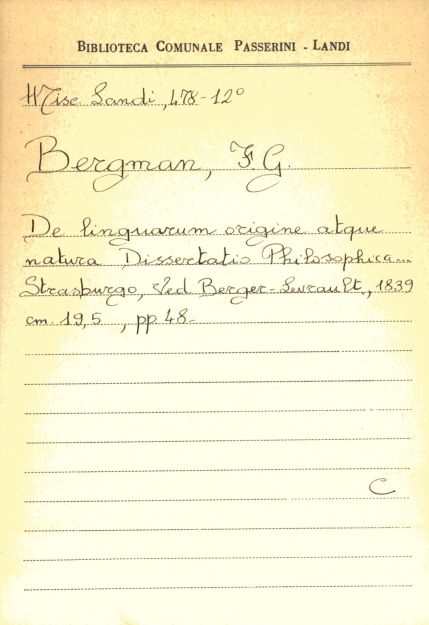 BIBLIOTECA COMUNALE PASSERINI - LANDI
Misc Landi, 478-12°
Bergman, F. G.
De linguarum origine atque
natura Dissertatio Philosophica...
Strasburgo, Ved Berger-Levrault, 1839
cm. 19,5 , pp 48-
C